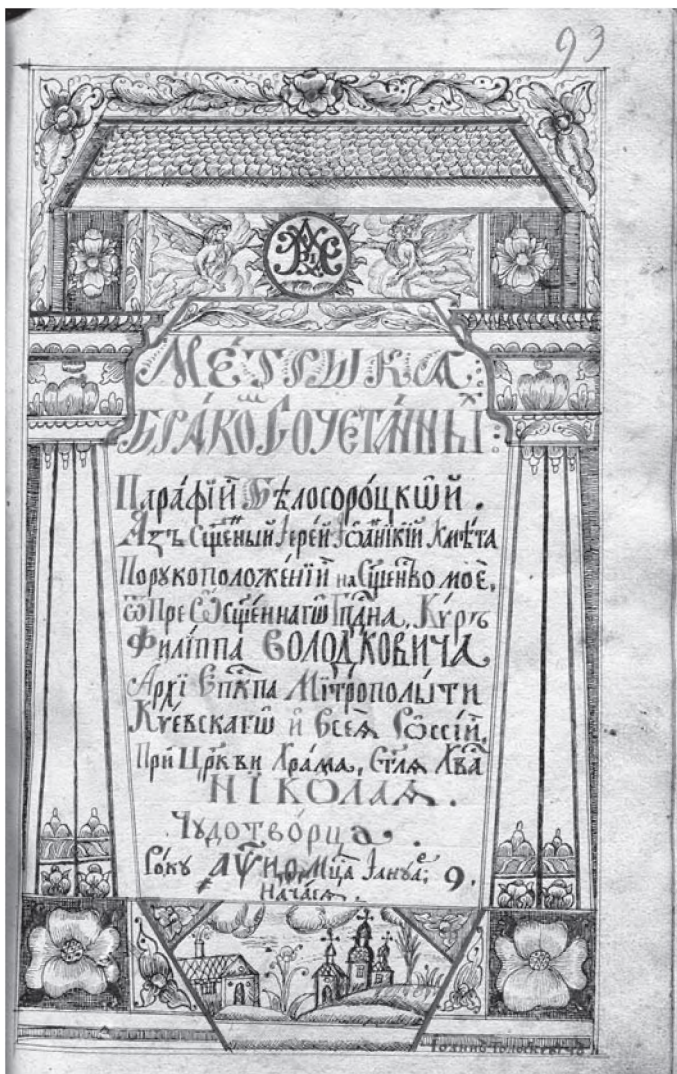 93
МЕ́ТРИКА:
БРАКѠ СОЧЕТА́ННЫ́Х:
Парафі́й Бѣлосоро́цкѡй.
Азъ Сщ҃е́нный Іере́й Іѡаннікі́й
Порукоположе́нїй на Сще҃нство мое,
ѿ Преѡсщ҃еннагѡ Гпⷣана, Ку́ръ
Філі́ппа ВОЛОДКОВИЧА
Архі Епⷭ҇кпа Мітрополы́ти
Кі́евскагѡ и́ Всея̀ Рѡссі́й,
При́ Црⷦ҇ви Хра́ма, Ст҃ля Хв҃а
НІКОЛАѦ.
Чудотво́рца.
Ро́ку Мцⷭ҇а Іануа: 9.
Нача́ся.